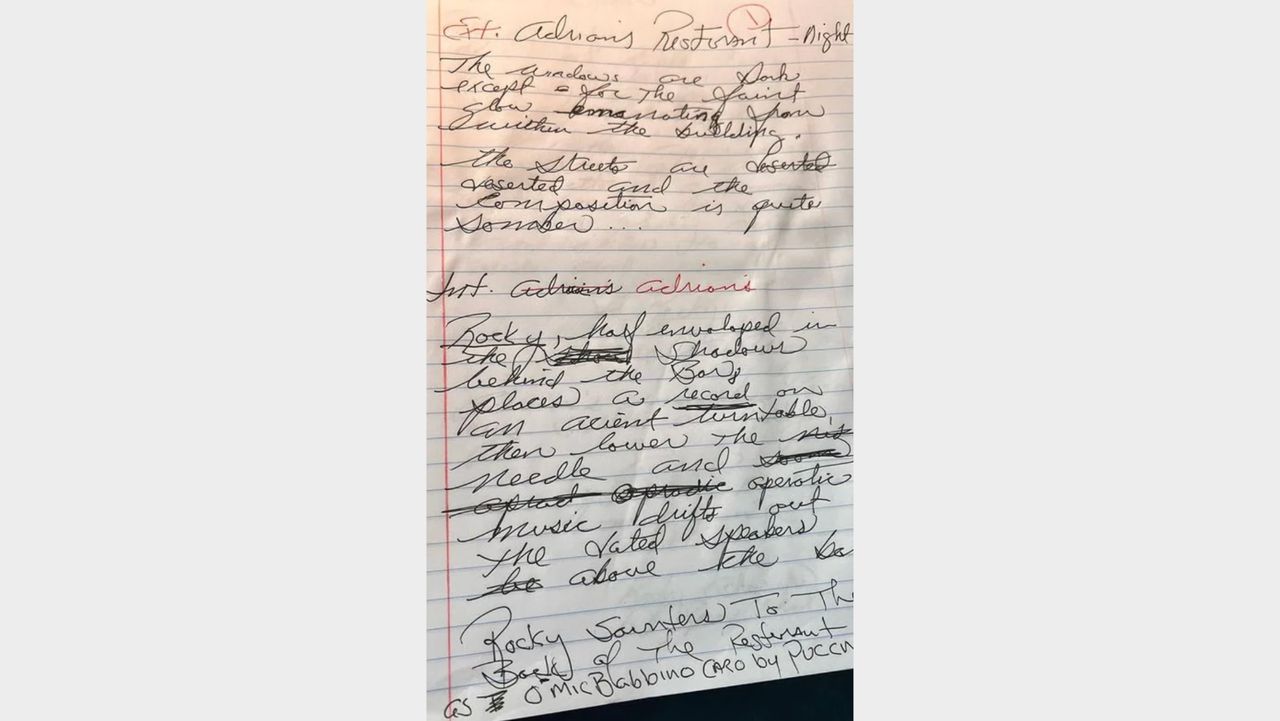 Ext. Adrian's Restorant - Night
1
The windows are Dark
except - for the faint
glow emanating from
within the building.
the streets are deserted
deserted and the
Composition is quite
Somber ...
Int. Adrian's Adrian's
Rocky, half enveloped in
the Shadows
behind the Bar,
places a record on
an acient turntable,
then lower the
needle and
operatic
music drifts out
the dated speakers
above the ba
Rocky Saunters To The
Back of The Resterant
as O'Mio Babbino Caro by Puccin